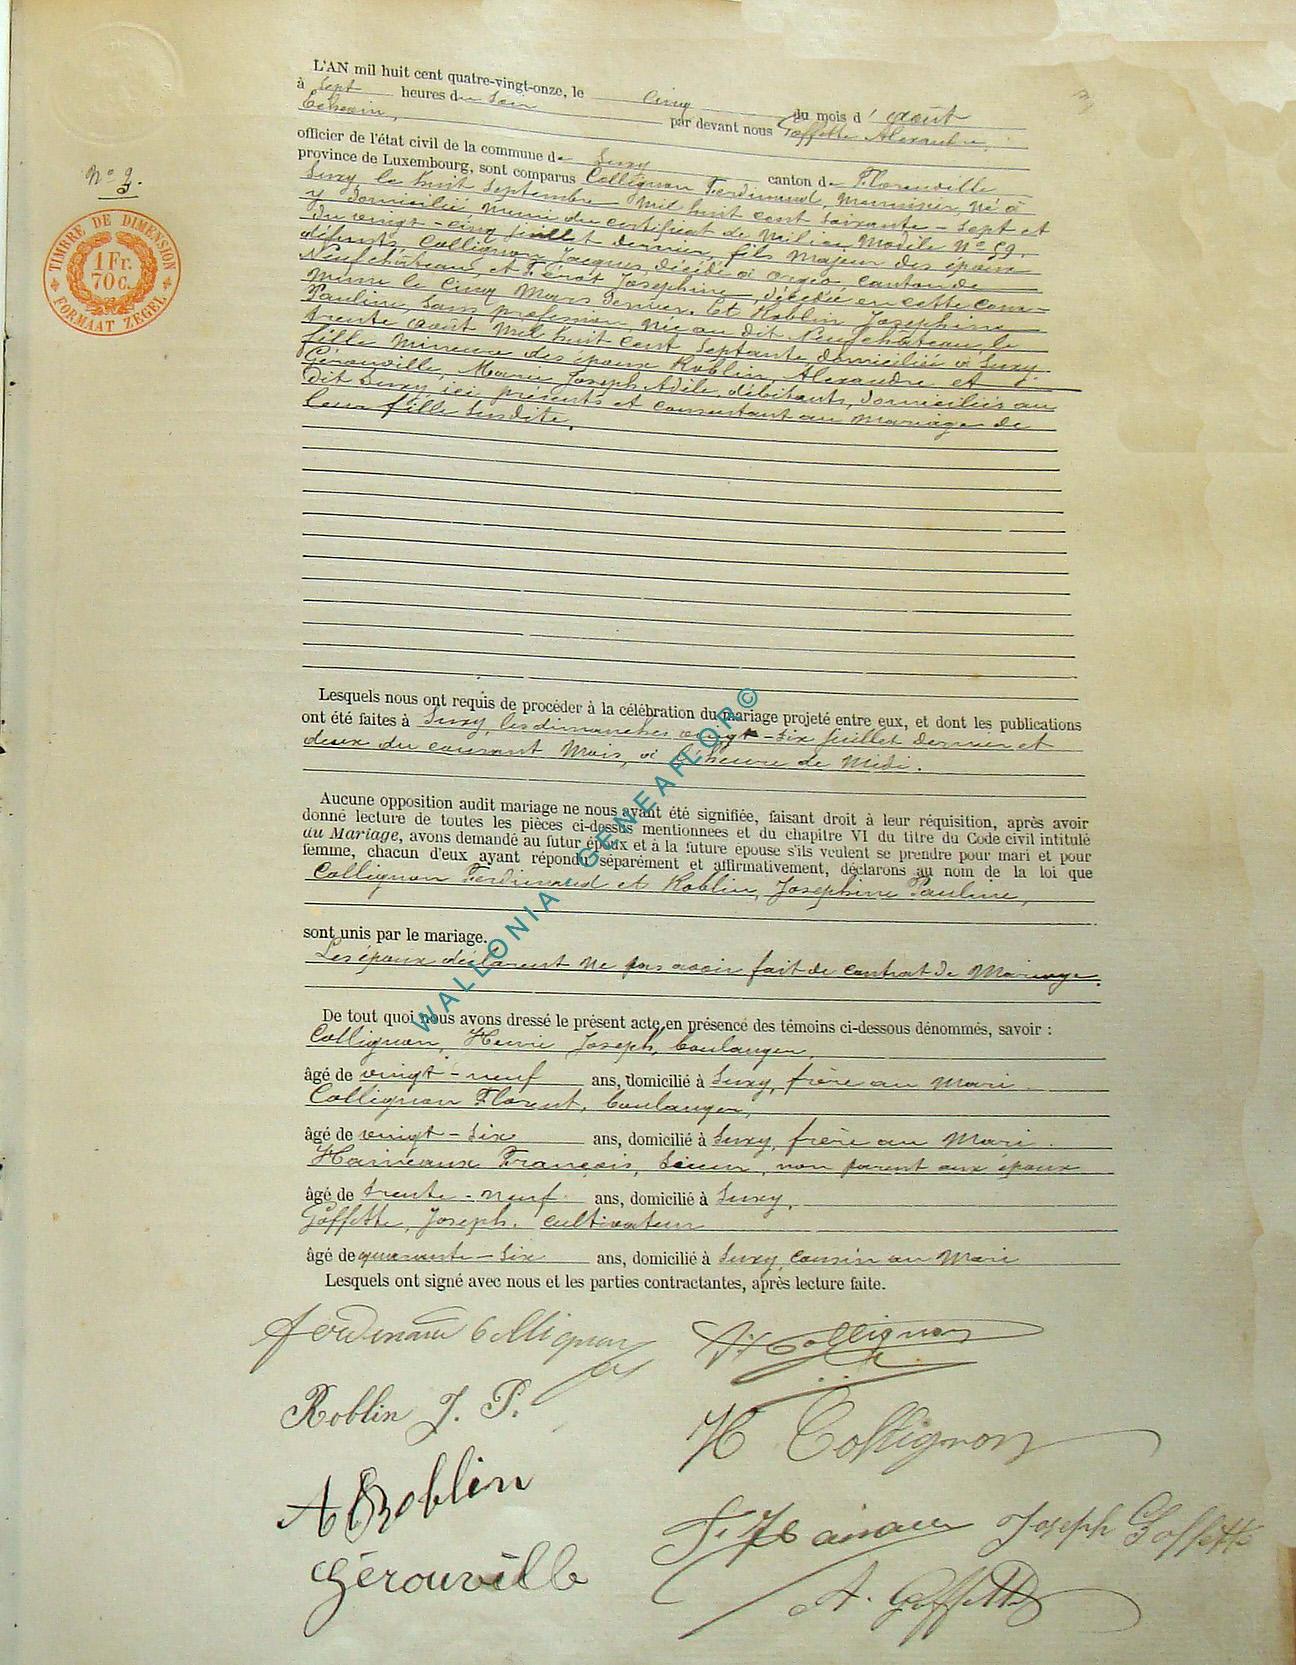 L'AN mil huit cent quatre-vingt-onze, le cinq du mois d'août
à sept heures du soir par devant nous Goffette Alexandre,
Echevin,
officier de l'état civil de la commune de Suxy canton de Florenville
province de Luxembourg, sont comparus Collignon Ferdinand, Menuisier, né à
Suxy le huit Septembre Mil huit cent soixante-sept et
y domicilié muni du certificat de Milice Modèle N° 59,
du vingt-cinq juillet dernier, fils majeur des époux
défunts Collignon Jacques, décédé à orgeo, canton de
Neufchâteau, et Joséphine, décédée en cette com-
mune le cinq Mars dernier. Et Roblin Joséphine
Pauline, sans profession née au dit Neufchâteau, le
trente août Mil huit cent septante, domiciliée à Suxy,
fille mineure des époux Roblin, Alexandre et
Gérouville, Marie Joseph Adèle, débitants, domiciliés au
dit Suxy ici présents et consentant au mariage de
leur fille susdite.
Lesquels nous ont requis de procéder à la célébration du mariage projeté entre eux, et dont les publications
ont été faites à Suxy, les dimanches vingt-six juillet dernier et
deux du courant Mois, à l'heure de Midi.
Aucune opposition audit mariage ne nous ayant été signifiée, faisant droit à leur réquisition, après avoir
donné lecture de toutes les pièces ci-dessus mentionnees et du chapitre VI du titre du Code civil intitulé
du Mariage, avons demandé au futur époux et à la future épouse s'ils veulent se prendre pour mari et pour
femme, chacun d'eux ayant répondu séparément et affirmativement, déclarons au nom de la loi que
Collignon Ferdinand et Roblin, Joséphine Pauline,
sont unis par le mariage.
Les époux déclarent ne pas avoir fait de contrat de Mariage.
De tout quoi nous avons dressé le présent acte en présence des témoins ci-dessous dénommés, savoir :
Collignon, Henri Joseph, boulanger,
âgé de vingt-neuf ans, domicilié à Suxy, frère au Mari
Collignon Florent, boulanger,
âgé de vingt-six ans, domicilié à Suxy, frère au Mari.
Haineaux François, Scieur, non parent aux époux
âgé de trente-neuf ans, domicilié à Suxy,
Goffette, Joseph, cultivateur
âgé de quarante-six ans, domicilié à Suxy, cousin au Mari
Lesquels ont signé avec nous et les parties contractantes, après lecture faite.
Ferdinand Collignon
Collignon
Roblin J. P.
H Collignon
A Roblin
Joseph Goffette
Gérouville
A. Goffette
N° 9.
TIMBRE DE DIMENSION
1 Fr.
70 C.
FORMAAT ZEGEL
WALLONIA - GENEAFLOR©